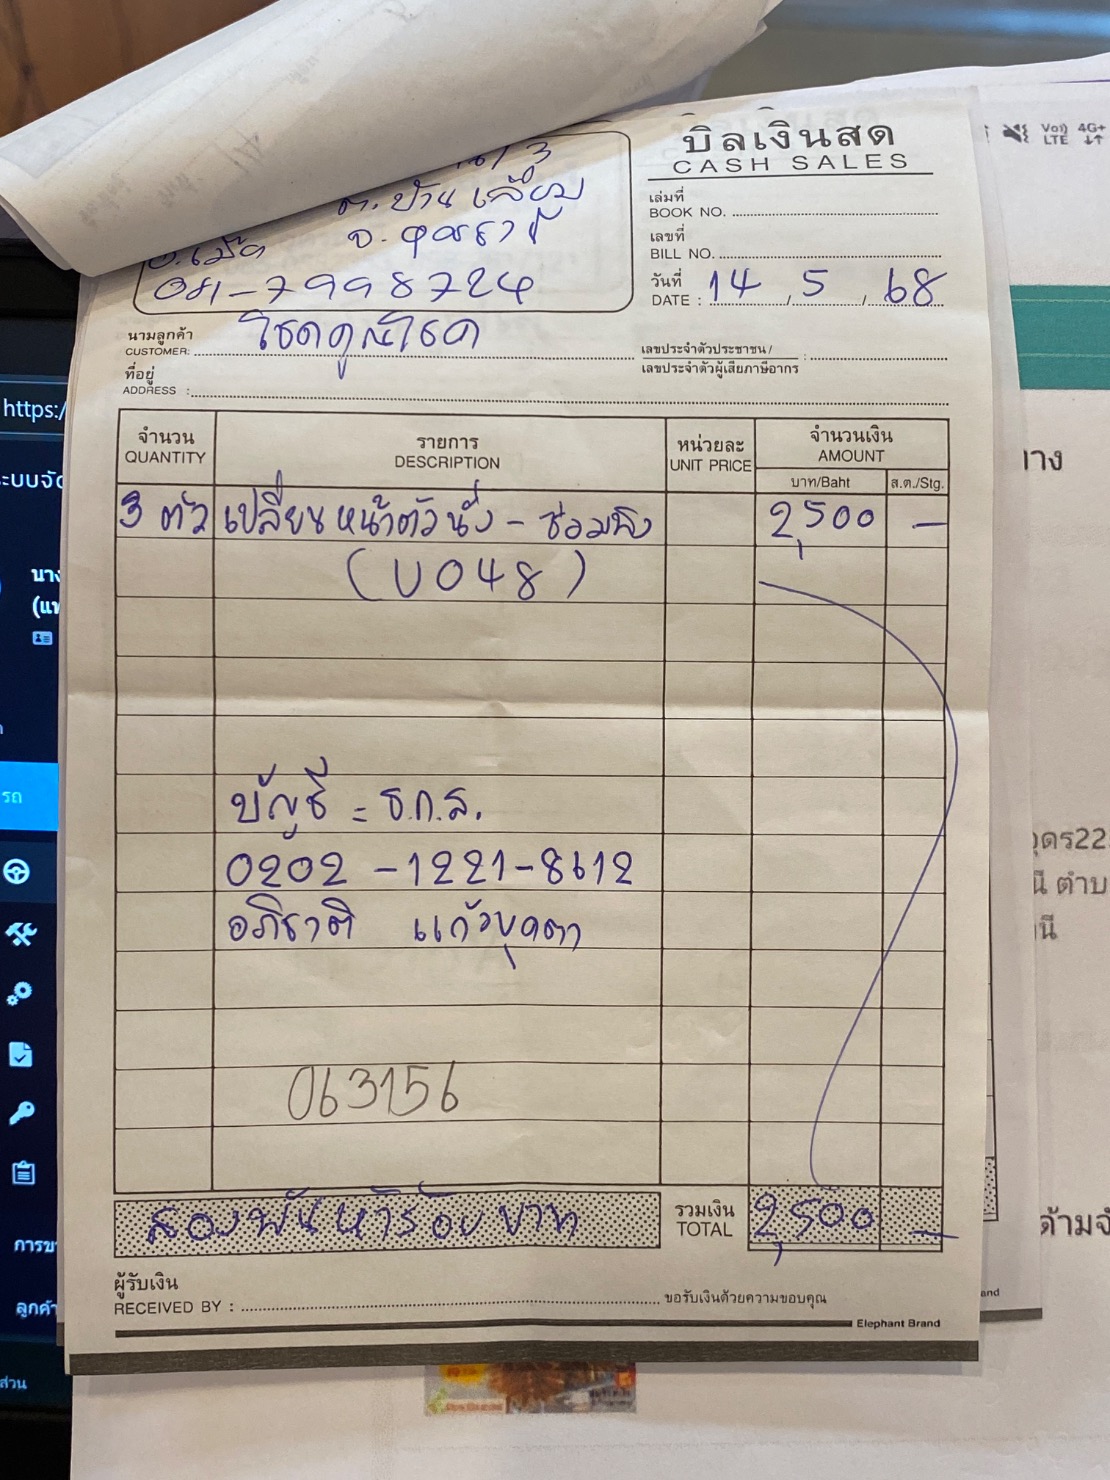 บิลเงินสด
CASH SALES
ต.บ้านเลื่อม
จ.อุดรธานี
081-7998724
เล่มที่
BOOK NO.
เลขที่
BILL NO.
วันที่
DATE : 14 / 5 / 68
นามลูกค้า
CUSTOMER: โชคคูณโชค
เลขประจำตัวประชาชน /
เลขประจำตัวผู้เสียภาษีอากร :
ที่อยู่
ADDRESS :
จำนวน รายการ หน่วยละ จำนวนเงิน
QUANTITY DESCRIPTION UNIT PRICE AMOUNT
บาท/Baht ส.ต./Stg.
3 ตัว เปลี่ยนหน้าตัวนั่ง - ซ่อมพิง 2,500 —
(U048)
บัญชี = ธ.ก.ส.
0202 -1221-8612
อภิชาติ แก้วบุดตา
063156
สองพันห้าร้อยบาท
รวมเงิน
TOTAL 2,500 —
ผู้รับเงิน
RECEIVED BY : ขอรับเงินด้วยความขอบคุณ
Elephant Brand
https:/
รถ
ลูกค้า
ส่วน
4G+
LTE